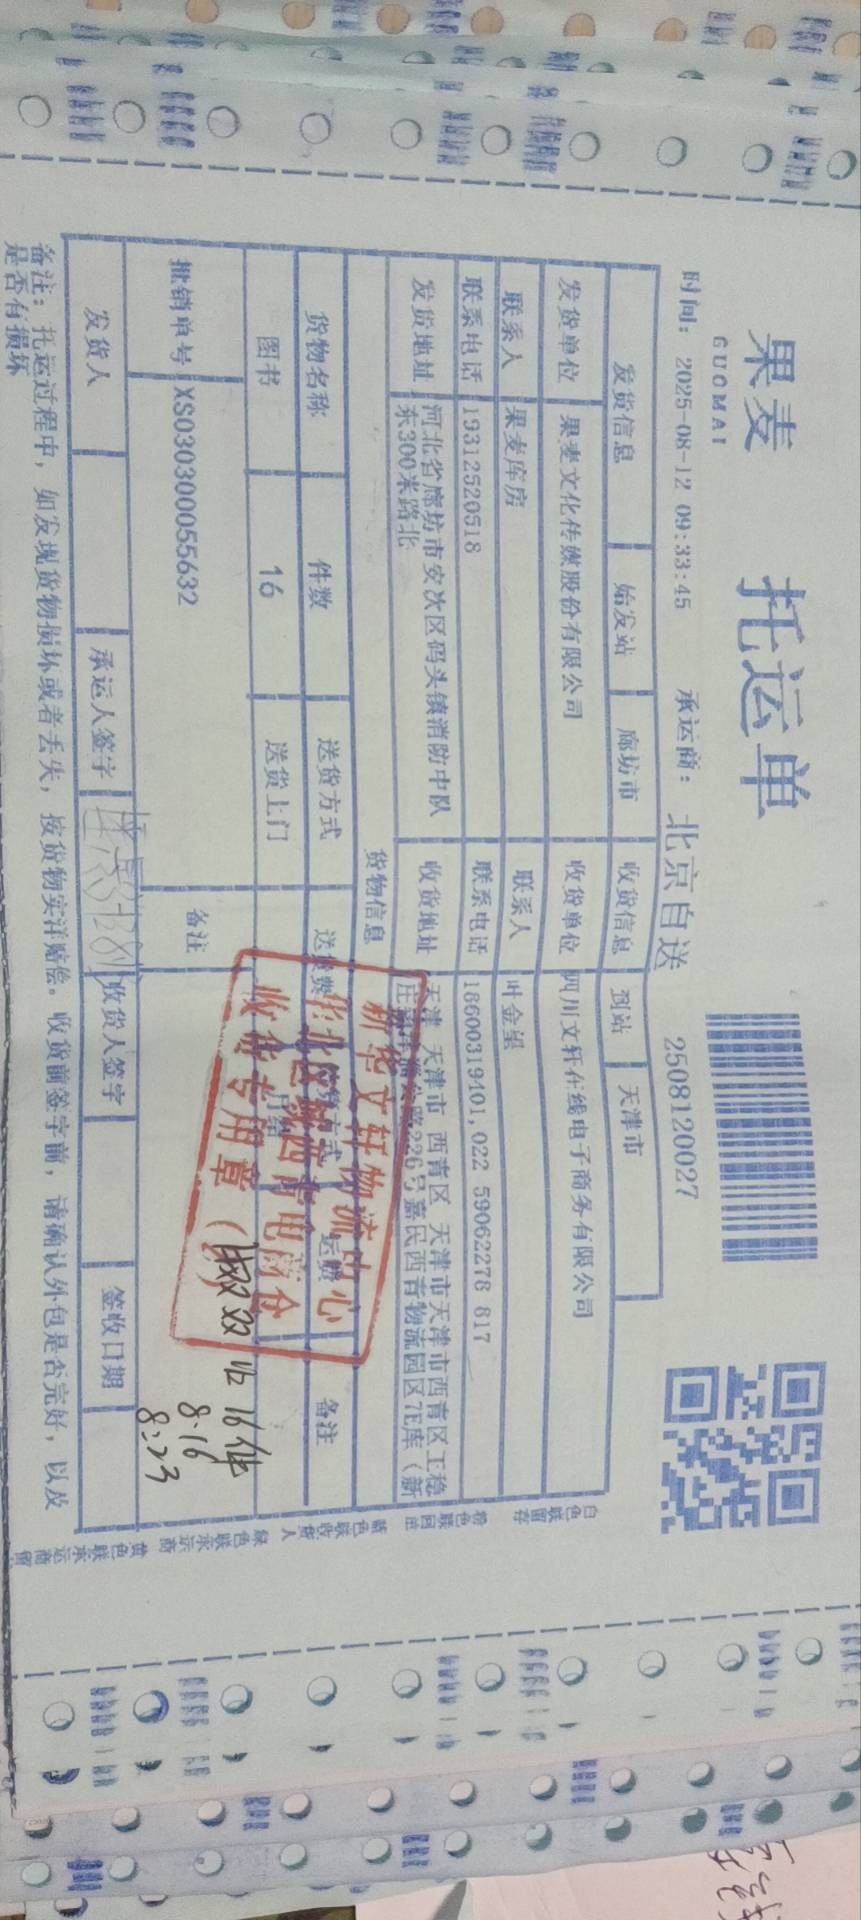 果麦
GUOMAI
托运单
时间: 2025-08-12 09:33:45 承运商: 北京自送 2508120027
发货信息 始发站 廊坊市 收货信息 到站 天津市
发货单位 果麦文化传媒股份有限公司 收货单位 四川文轩在线电子商务有限公司
联系人 果麦库房 联系人 叶金望
联系电话 19312520518 联系电话 18600319401,022 59062278 817
发货地址 河北省廊坊市安次区码头镇消防中队东300米路北 收货地址 天津 天津市 西青区 天津市天津市西青区王稳庄 226号嘉民西青物流园区7E库(新
货物信息
货物名称 件数 送货方式 送货费 方式 运费 备注
图书 16 送货上门 月结
批销单号 XS030300055632 备注
发货人 承运人签字 收货人签字 签收日期
备注: 托运过程中, 如发现货物损坏或者丢失, 按货物实洋赔偿。收货前签字前, 请确认外包是否完好, 以及是否有损坏
新华文轩物流中心
华北区域西青电商仓
收货专用章(
16件
8.16
8:23
白色联留存
粉色联回单
蓝色联收货人
绿色联承运商
黄色联承运商留